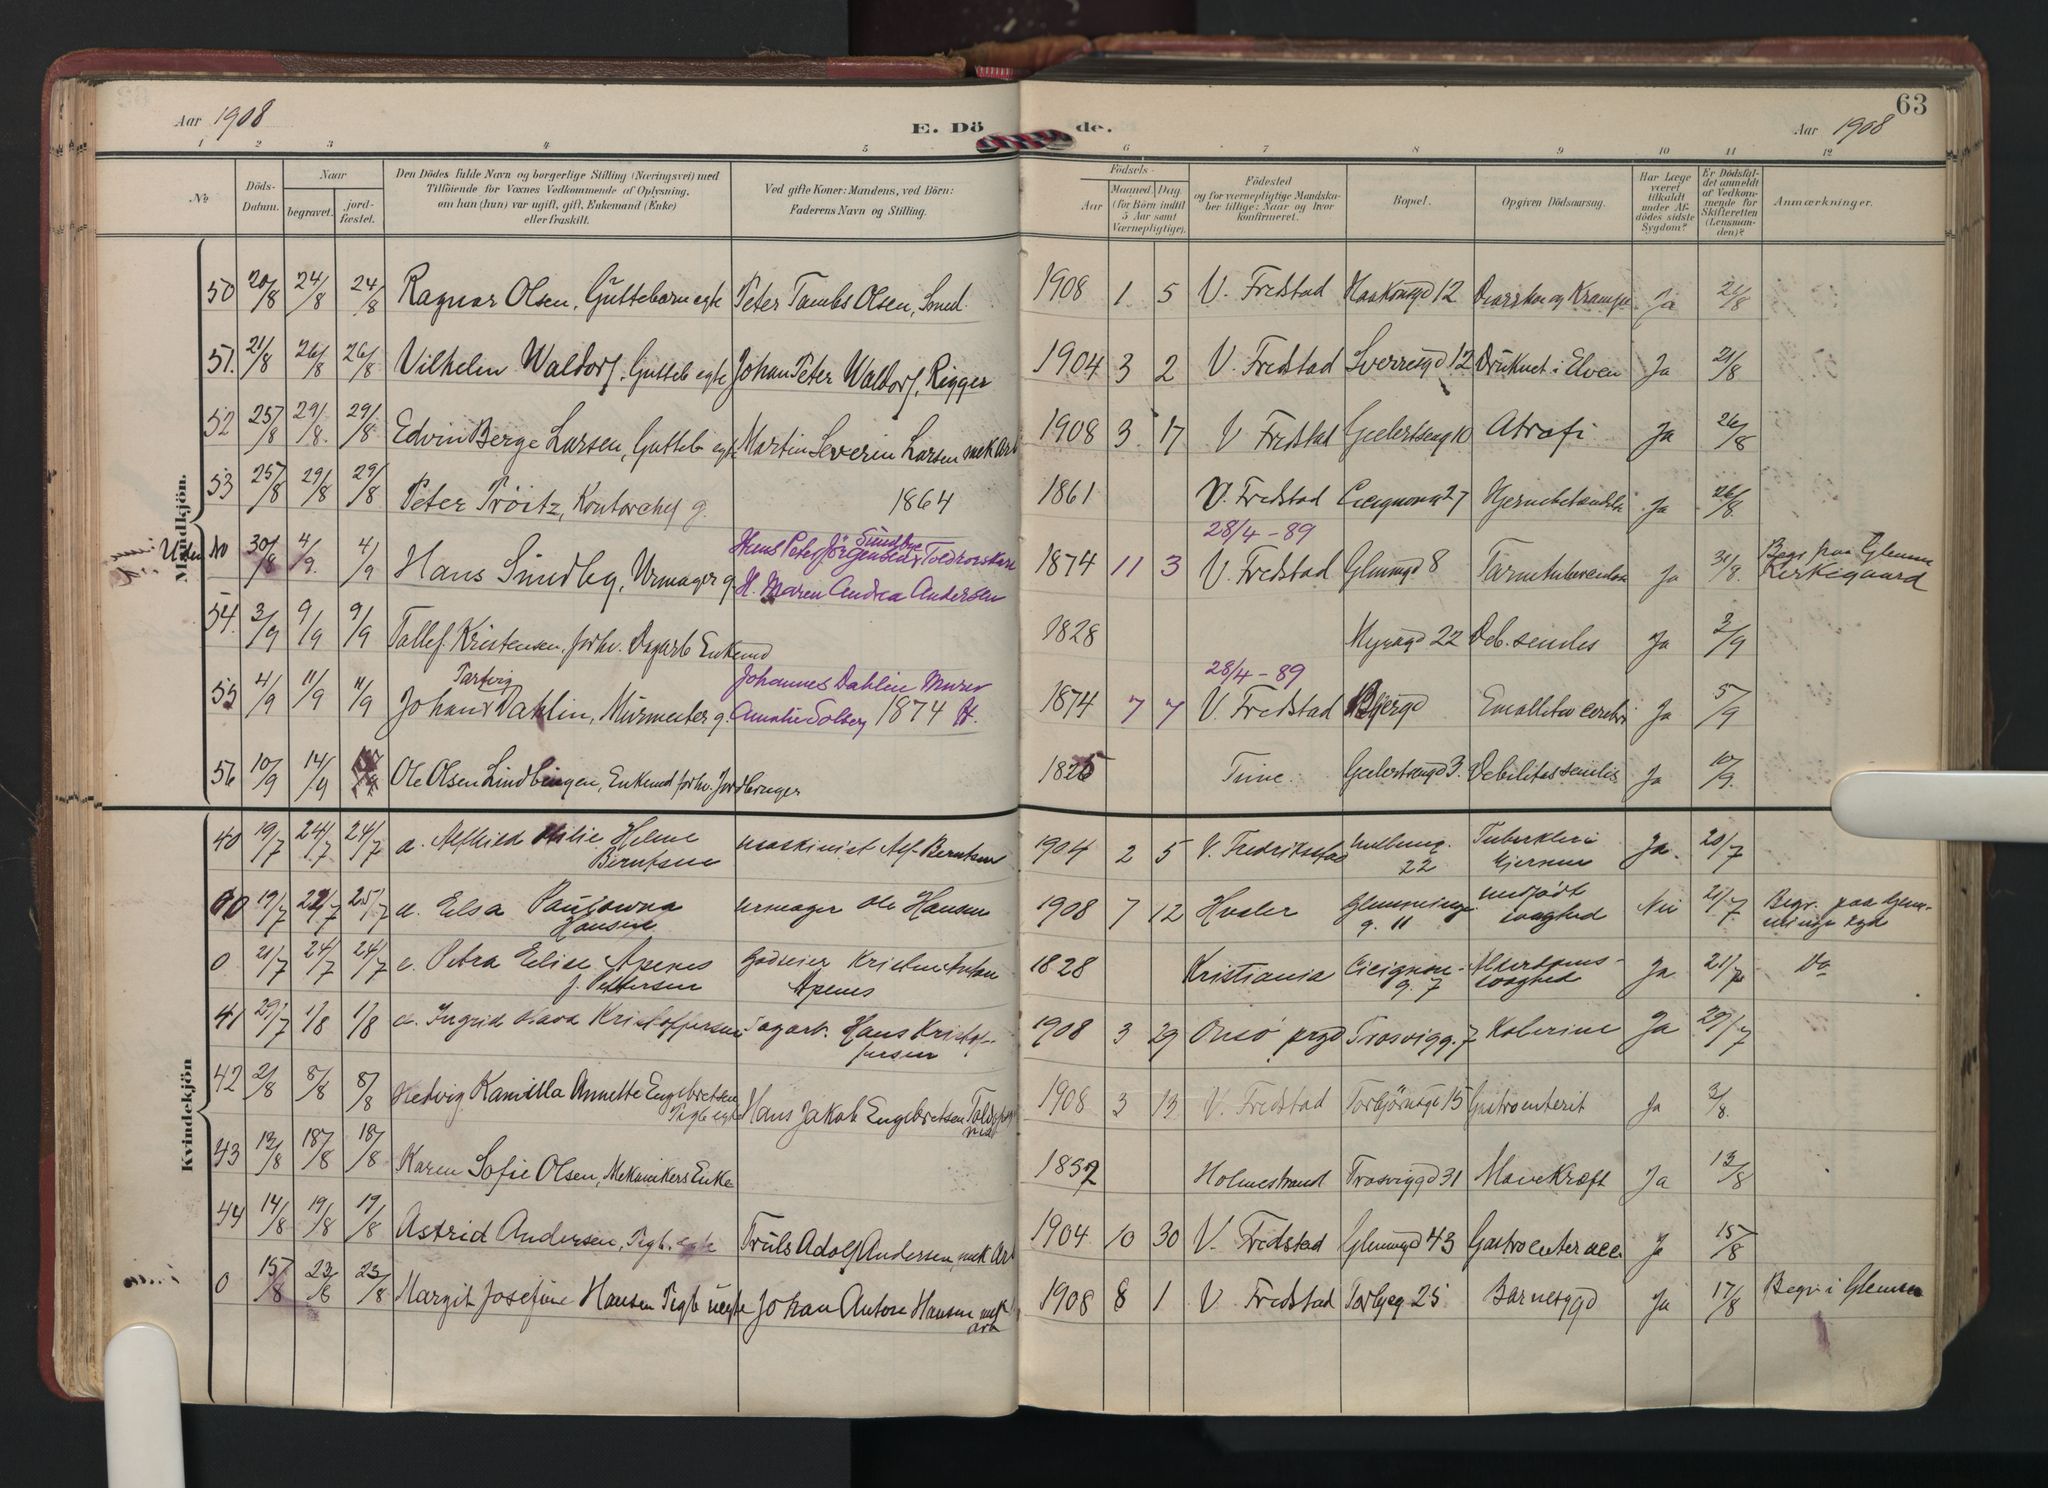 Aar 1908
E. Dö de.
63
Aar 1908
1 2 3 4 5 6 7 8 9 10 11 12
No
Döds-Datum.
Naar
begravet.
jord-fæstet.
Den Dödes fulde Navn og borgerlige Stilling (Næringsvei) med
Tilföiende for Voxnes Vedkommende af Oplysning,
om han (hun) var ugift, gift, Enkemand (Enke)
eller fraskilt.
Ved gifte Koner: Mandens, ved Börn:
Faderens Navn og Stilling.
Födsels-
Aar
Maaned. Dag.
(for Börn indtil
5 Aar samt
Værnepligtige).
Födested
og for værnepligtige Mandska-
ber tillige: Naar og hvor
konfirmeret.
Bopæl.
Opgiven Dödsaarsag.
Har Læge
været
tilkaldt
under Af-
dödes sidste
Sygdom?
Er Dödsfal-
det anmeldt
af Vedkom-
mende for
Skifteretten
(Lensman-
den)?
Anmærkninger.
Mandkjön.
50 20/8 24/8 24/8 Ragnar Olsen, Guttebarn egte Peter Tambs Olsen, Smed 1908 1 5 V. Fredstad Haakonsgd 12 Diarrhoe og Krampe Ja 21/8
51. 21/8 26/8 26/8 Vilhelm Waldorf. Gutteb egte Johan Peter Waldorf, Rigger 1904 3 2 V. Fredstad Sverresgd 12 Druknet i Elven Ja 21/8
52 25/8 29/8. 29/8. Edvin Berge Larsen, Gutteb egte Martin Severin Larsen mek Arb 1908 3 17 V Fredstad Geelertsengd 10 Atrofi Ja 26/8
53 25/8 29/8 29/8 Peter Tröitz, Kontorchef g. 1864 1861 V. Fredstad Cicignongd 27 Ja 26/8.
Uden No 30/8 4/9. 4/9 Hans Sundby, Urmager g Hans Peter Jörgensen Sundbye Toldroerskarl
H. Maren Andrea Andersen 1874 11 3 28/4 - 89
V. Fredstad Glemmgd 8 Ja 31/8. Begr. paa Glemm
Kirkegaard
54. 3/9 9/9 9/9 Tallef Kristensen, forhv. Dagarb Enkemd 1828 Myragd 22 Deb. senilis Ja 3/9
55 4/9 11/9 11/9 Johan Dahlin, Murmester g. Johannes Dahlin Murer
Amalie Solberg 1874 1874 7 7 28/4 - 89
V. Fredstad Ja 5/9
56 10/9 14/9 Ole Olsen Lindbingen, Enkemd forhv. Jordbruger 1825 Tune. Geelertsengd 3. Debilitas senilis Ja 10/9.
Kvindekjön
40 19/7 24/7 24/7 a. Alfhild Otilie Helene
Berntsen maskinist Alf Berntsen 1904 2 5 V. Fredriksstad 22 Tuberkler i
Hjernen Ja. 20/7
00 19/7 22/7 25/7 a. Elsa Paulowna
Hansen urmager Ole Hansen 1908 7 12 Hvaler Glemminge
g. 11 medfödt
svaghed Nei 21/7 Begr. paa Glem-
minge kgd
0 21/7 24/7 24/7 c. Petra Elise Apenes
f. Pettersen Gödseier Kristen Anton
Apenes 1828 Kristiania Cicignon-
g. 7 Alderdoms-
svaghed Ja 21/7 Do
41 29/7 1/8 1/8 a. Ingrid Olava Kristoffersen Dagarb. Hans Kristof-
fersen 1908 3 29 Onsö prgd Trosvigg. 7 Kolerine Ja 29/7
42 2/8 8/8 8/8 Hedvig Kamilla Annette Engebretsen
Pigb egte Hans Jakob Engebretsen 1908 3 13 V. Fredstad Torbjörnsgd 15 Gastroenterit Ja 3/8.
43 13/8 18/8 18/8 Karen Sofie Olsen, Mekanikers Enke 1837 Holmestrand Trosviggd 31 Mavekræft Ja 13/8
44 14/8 19/8 19/8 Astrid Andersen, Pigb. egte Truls Adolf Andersen, mek Arb 1904 10 30 V. Fredstad Glemmgd 43 Ja 15/8
0 15/8 23/8 23/8 Margit Josefine Hansen Pigb uegte Johan Anton Hansen mek
arb 1908 8 1 V Fredstad Torbjeg 25 Barnesygd Ja 17/8 Begr. i Glemm